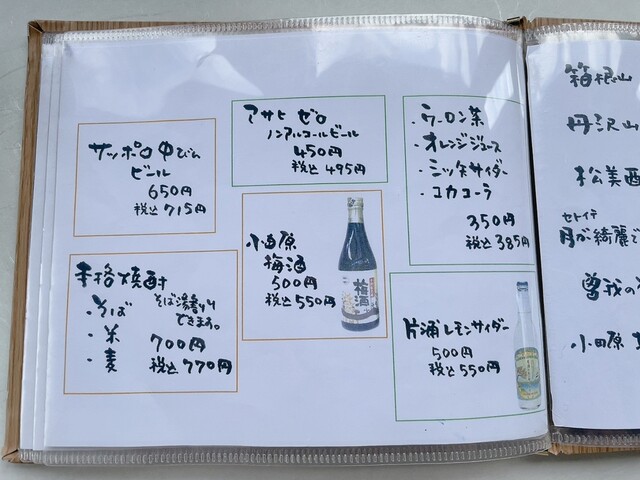 サッポロ中びん
ビール
650円
税込715円
本格焼酎
・そば
そば湯割り
できます。
・米
・麦
700円
税込770円
アサヒ ゼロ
ノンアルコールビール
450円
税込495円
小田原
梅酒
500円
税込550円
梅酒
・ウーロン茶
・オレンジジュース
・ミツヤサイダー
・コカコーラ
350円
税込385円
片浦レモンサイダー
500円
税込550円
箱根山
丹沢山
松美酉
セトイチ
月が綺麗で
曽我の
小田原